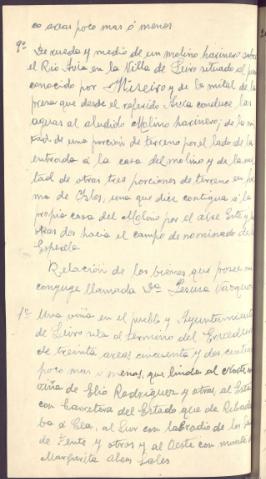 co areas poco mas ó menos
9º De rueda y media de un molino harinero sobre
el Rio Avia en la Villa de Leiro situado al
conocido por Mireiro y de la mitad de la
presa que desde el referido Avia conduce las
aguas al aludido Molino harinero; de la mi
tad de una porción de terreno por el lado de la
entrada a la casa del molino y de la mi
tad de otras tres porciones de terreno en
ma de Islas, una que dice contigua a la
propia casa del Molino por el aire Este y
otras dos hacia el campo denominado de
Espiela
Relación de los bienes que posee su
conyuge llamada Dª Teresa Vazquez
1º Una viña en el pueblo y Ayuntamiento
de Leiro sita al termino del
de treinta areas cincuenta y dos centi
poco mas o menos, que linda al Norte
viña de Elio Rodriguez y otros, al Este
con Carretera del Estado que de Ribada
bia á Cea, al Sur con labradio de los
de Zente y otros y al Oeste con
Margarita